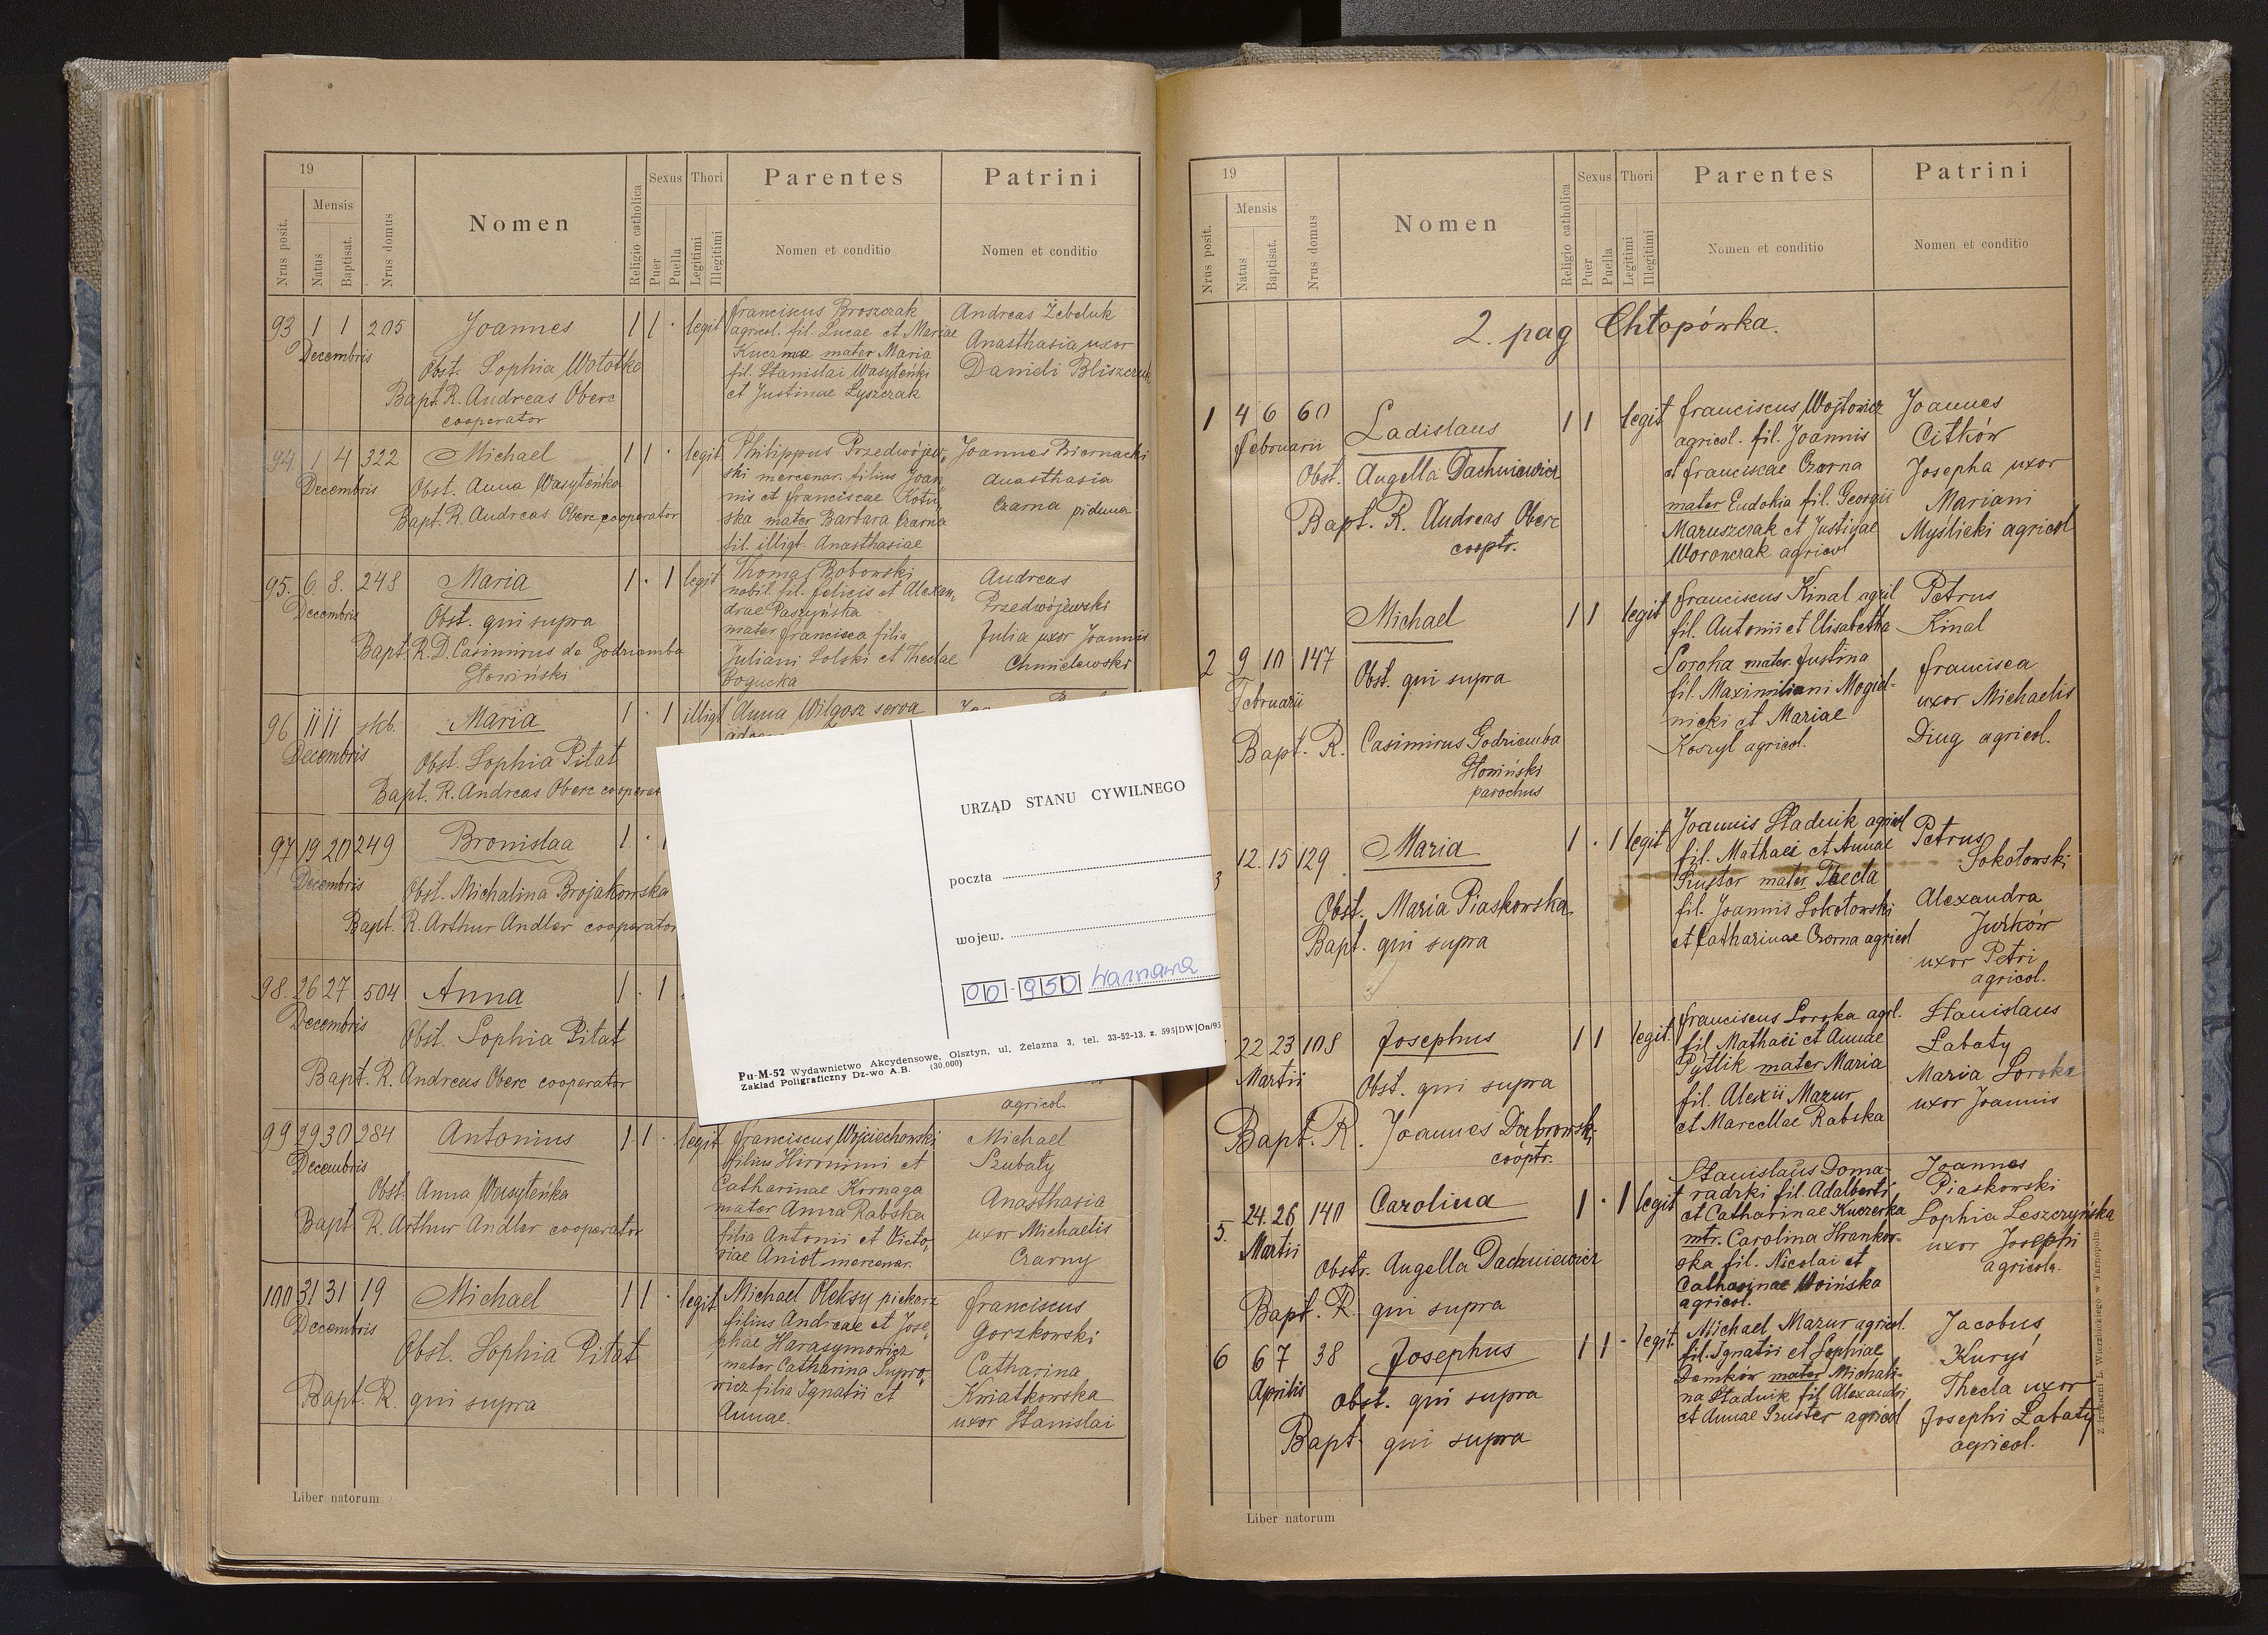 19
Mensis
Nrus posit.
Natus
Baptisat.
Nrus domus
Nomen
Religio catholica
Sexus
Puer
Puella
Thori
Legitimi
Illegitimi
Parentes
Nomen et conditio
Patrini
Nomen et conditio
93 1 1 205 Joannes 1 1 · legit
Decembris
Obst. Sophia Wołotko
Bapt. R. Andreas Oberc
cooperator
Franciscus Broszczak
agricol. fil. Lucae et Mariae
Kuczma mater Maria
fil. Stanislai Wasyleńki
et Justinae Łyszczak
Andreas Żebeluk
Anasthasia uxor
Danieli Bliszczuk
94. 1 4 322 Michael 1 1 · legit
Decembris
Obst. Anna Wasyleńko
Bapt. R. Andreas Oberc cooperator
Philippus Przedwójew„
ski mercenar. filius Joan„
nis et Franciscae Kotu„
ska mater Barbara Czarna
fil. illigt. Anasthasiae
Joannes Biernacki
Anasthasia
Czarna vidua
95. 6. 8. 248 Maria 1 · 1 legit
Decembris
Obst. qui supra
Bapt. R. D. Casimirus de Godziemba
Słowiński
Thomas Bobowski
nobil. fil. Felicis et Alexan„
drae Paszyńska
mater Francisca filia
Juliani Solski et Theclae
Bogucka
Andreas
Przedwójewski
Julia uxor Joannis
Chmielewski
96 11 11 skb. Maria 1 · 1 illigt
Decembris
Obst. Sophia Pitat
Bapt. R. Andreas Oberc cooperat
Anna Wilgosz serva
97 19 20 249 Bronislaa 1 ·
Decembris
Obst. Michalina Brojakowska
Bapt. R. Arthur Andler cooperator
98. 26 27 504 Anna 1 · 1
Decembris
Obst. Sophia Pitat
Bapt. R. Andreas Oberc cooperator
agricol.
99 29 30 284 Antonius 1 1 · legit
Decembris
Obst. Anna Wasyleńka
Bapt R. Arthur Andler cooperator
Franciscus Wojciechowski
filius Hironimi et
Catharinae Kornaga
mater Anna Rabska
filia Antonii et Victo„
riae Aniot mercenar.
Michael
Szubaty
Anasthasia
uxor Michaelis
Czarny
100 31 31 19 Michael 1 1 · legit
Decembris
Obst. Sophia Pitat
Bapt. R. qui supra
Michael Oleksy piekarz
filius Andreae et Jose„
phae Harasymowicz
mater Catharina Supro„
wicz filia Ignatii et
Annae.
Franciscus
Gorzkowski
Catharina
Kwiatkowska
uxor Stanislai
Liber natorum
URZĄD STANU CYWILNEGO
poczta
wojew.
00-950 Warszawa
Pu-M-52 Wydawnictwo Akcydensowe, Olsztyn, ul. Żelazna 3, tel. 33-52-13. z. 595|DW|On/95
Zakład Poligraficzny Dz-wo A.B. (30.000)
19
Mensis
Nrus posit.
Natus
Baptisat.
Nrus domus
Nomen
Religio catholica
Sexus
Puer
Puella
Thori
Legitimi
Illegitimi
Parentes
Nomen et conditio
Patrini
Nomen et conditio
2. pag Chłopówka.
1 4 6 60 Ladislaus 1 1 legit
Februarii
Obst. Angella Dachniewicz
Bapt. R. Andreas Oberc
cooptr.
Franciscus Wojtowicz
agricol. fil. Joannis
et Franciscae Czorna
mater Eudokia fil. Georgii
Maruszczak et Justinae
Woronczak agricol
Joannes
Citków
Josepha uxor
Mariani
Myślicki agricol
2 9 10 147 Michael 1 1 legit
Februarii
Obst. qui supra
Bapt. R. Casimirus Godziemba
Słowiński
parochus
Franciscus Kinal agricol
fil. Antonii et Elisabetha
Soroka mater. Justina
fil. Maximiliani Mogiel-
nicki et Mariae
Koszyl agricol.
Petrus
Kinal
Francisca
uxor Michaelis
Diug agricol.
3 12. 15 129 Maria 1 · 1 legit
Obst. Maria Piaskowska
Bapt. qui supra
Joannis Stadnik agricol
fil. Mathaei et Annae
Szuster mater Thecla
fil. Joannis Sokołowski
et Catharinae Czorna agricol
Petrus
Sokołowski
Alexandra
Jurków
uxor Petri
agricol.
22 23 108 Josephus 1 1 legit
Martii
Obst. qui supra
Bapt. R. Joannes Dabrowski
cooptr.
Franciscus Soroka agrl.
fil Mathaei et Annae
Pytlik mater Maria
fil. Alexii Mazur
et Marcellae Rabska
Stanislaus
Łabaty
Maria Soroka
uxor Joannis
5. 24. 26 140 Carolina 1 · 1 legit
Martii
Obstr. Angella Dachniewicz
Bapt. R. qui supra
Stanislaus Doma-
radzki fil. Adalberti
et Catharinae Kuczerka
mtr. Carolina Hrankow-
ska fil. Nicolai et
Catharinae Woińska
agricol.
Joannes
Piaskowski
Sophia Leszczyńska
uxor Josephi
agricola.
6 6 7 38 Josephus 1 1 - legit.
Aprilis
Obst. qui supra
Bapt. qui supra
Michael Mazur agricol.
fil. Ignatii et Sophiae
Demków mater Michali-
na Stadnik fil Alexandri
et Annae Szuster agricol
Jacobus
Kuryś
Thecla uxor
Josephi Łabaty
agricol.
Liber natorum
Z drukarni L. Wierzbickiego w Tarnopolu.